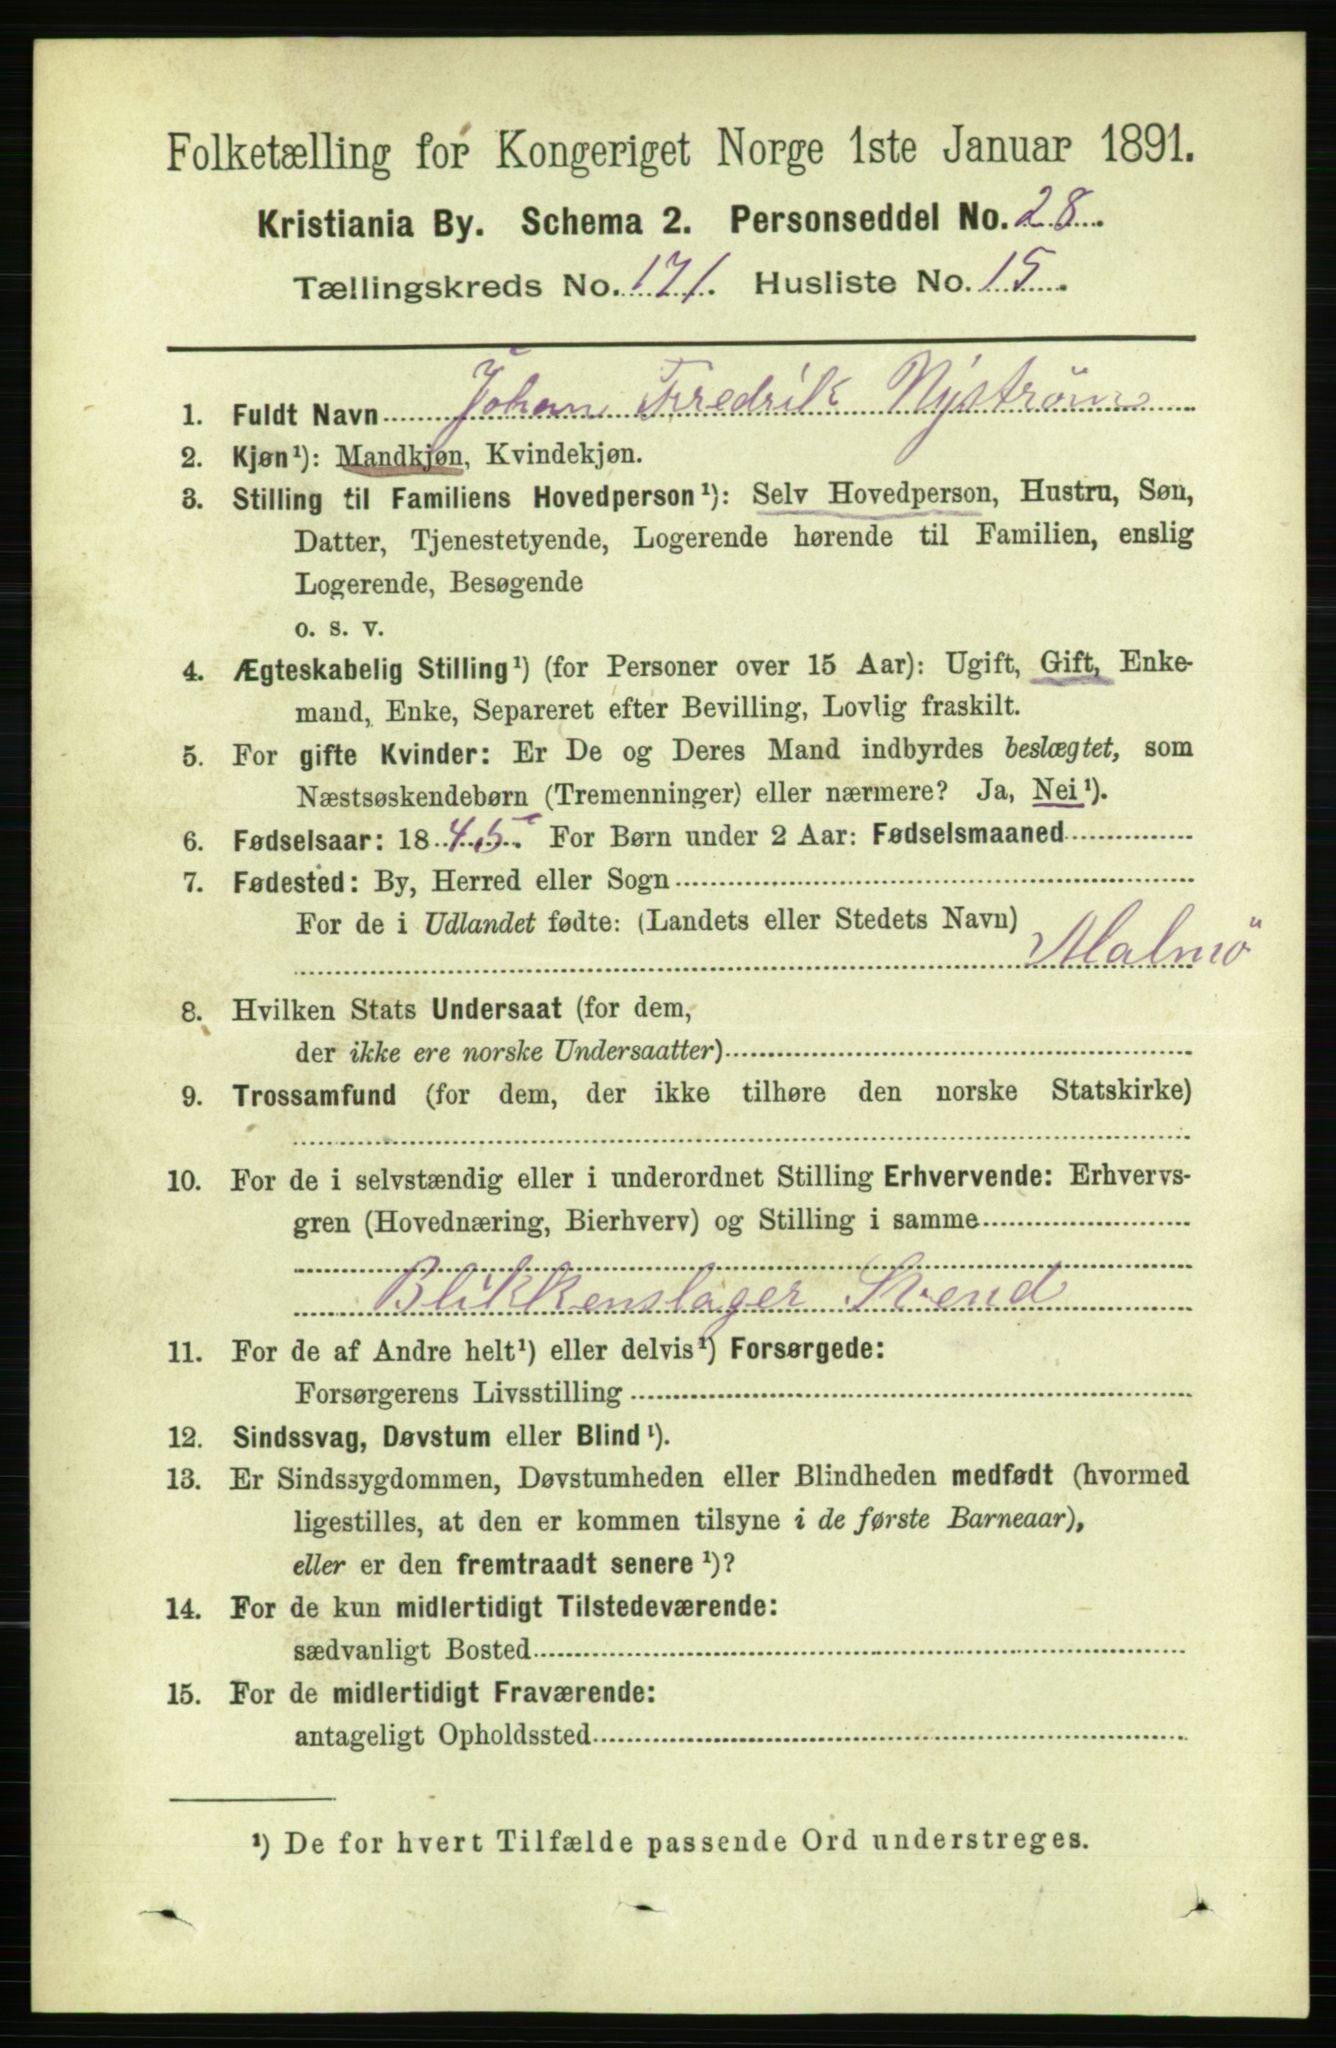 Folketælling for Kongeriget Norge 1ste Januar 1891.
Kristiania By. Schema 2. Personseddel No. 28.
Tællingskreds No. 171. Husliste No. 15.
1. Fuldt Navn Johan Fredrik Nyström
2. Kjøn¹): Mandkjøn, Kvindekjøn.
3. Stilling til Familiens Hovedperson¹): Selv Hovedperson, Hustru, Søn,
Datter, Tjenestetyende, Logerende hørende til Familien, enslig
Logerende, Besøgende
o. s. v.
4. Ægteskabelig Stilling¹) (for Personer over 15 Aar): Ugift, Gift, Enke-
mand, Enke, Separeret efter Bevilling, Lovlig fraskilt.
5. For gifte Kvinder: Er De og Deres Mand indbyrdes beslægtet, som
Næstsøskendebørn (Tremenninger) eller nærmere? Ja, Nei¹).
6. Fødselsaar: 1845. For Børn under 2 Aar: Fødselsmaaned
7. Fødested: By, Herred eller Sogn
For de i Udlandet fødte: (Landets eller Stedets Navn)
Malmö
8. Hvilken Stats Undersaat (for dem,
der ikke ere norske Undersaatter)
9. Trossamfund (for dem, der ikke tilhøre den norske Statskirke)
10. For de i selvstændig eller i underordnet Stilling Erhvervende: Erhvervs-
gren (Hovednæring, Bierhverv) og Stilling i samme
Blikkenslager Svend
11. For de af Andre helt¹) eller delvis¹) Forsørgede:
Forsørgerens Livsstilling
12. Sindssvag, Døvstum eller Blind¹).
13. Er Sindssygdommen, Døvstumheden eller Blindheden medfødt (hvormed
ligestilles, at den er kommen tilsyne i de første Barneaar),
eller er den fremtraadt senere¹)?
14. For de kun midlertidigt Tilstedeværende:
sædvanligt Bosted
15. For de midlertidigt Fraværende:
antageligt Opholdssted
¹) De for hvert Tilfælde passende Ord understreges.